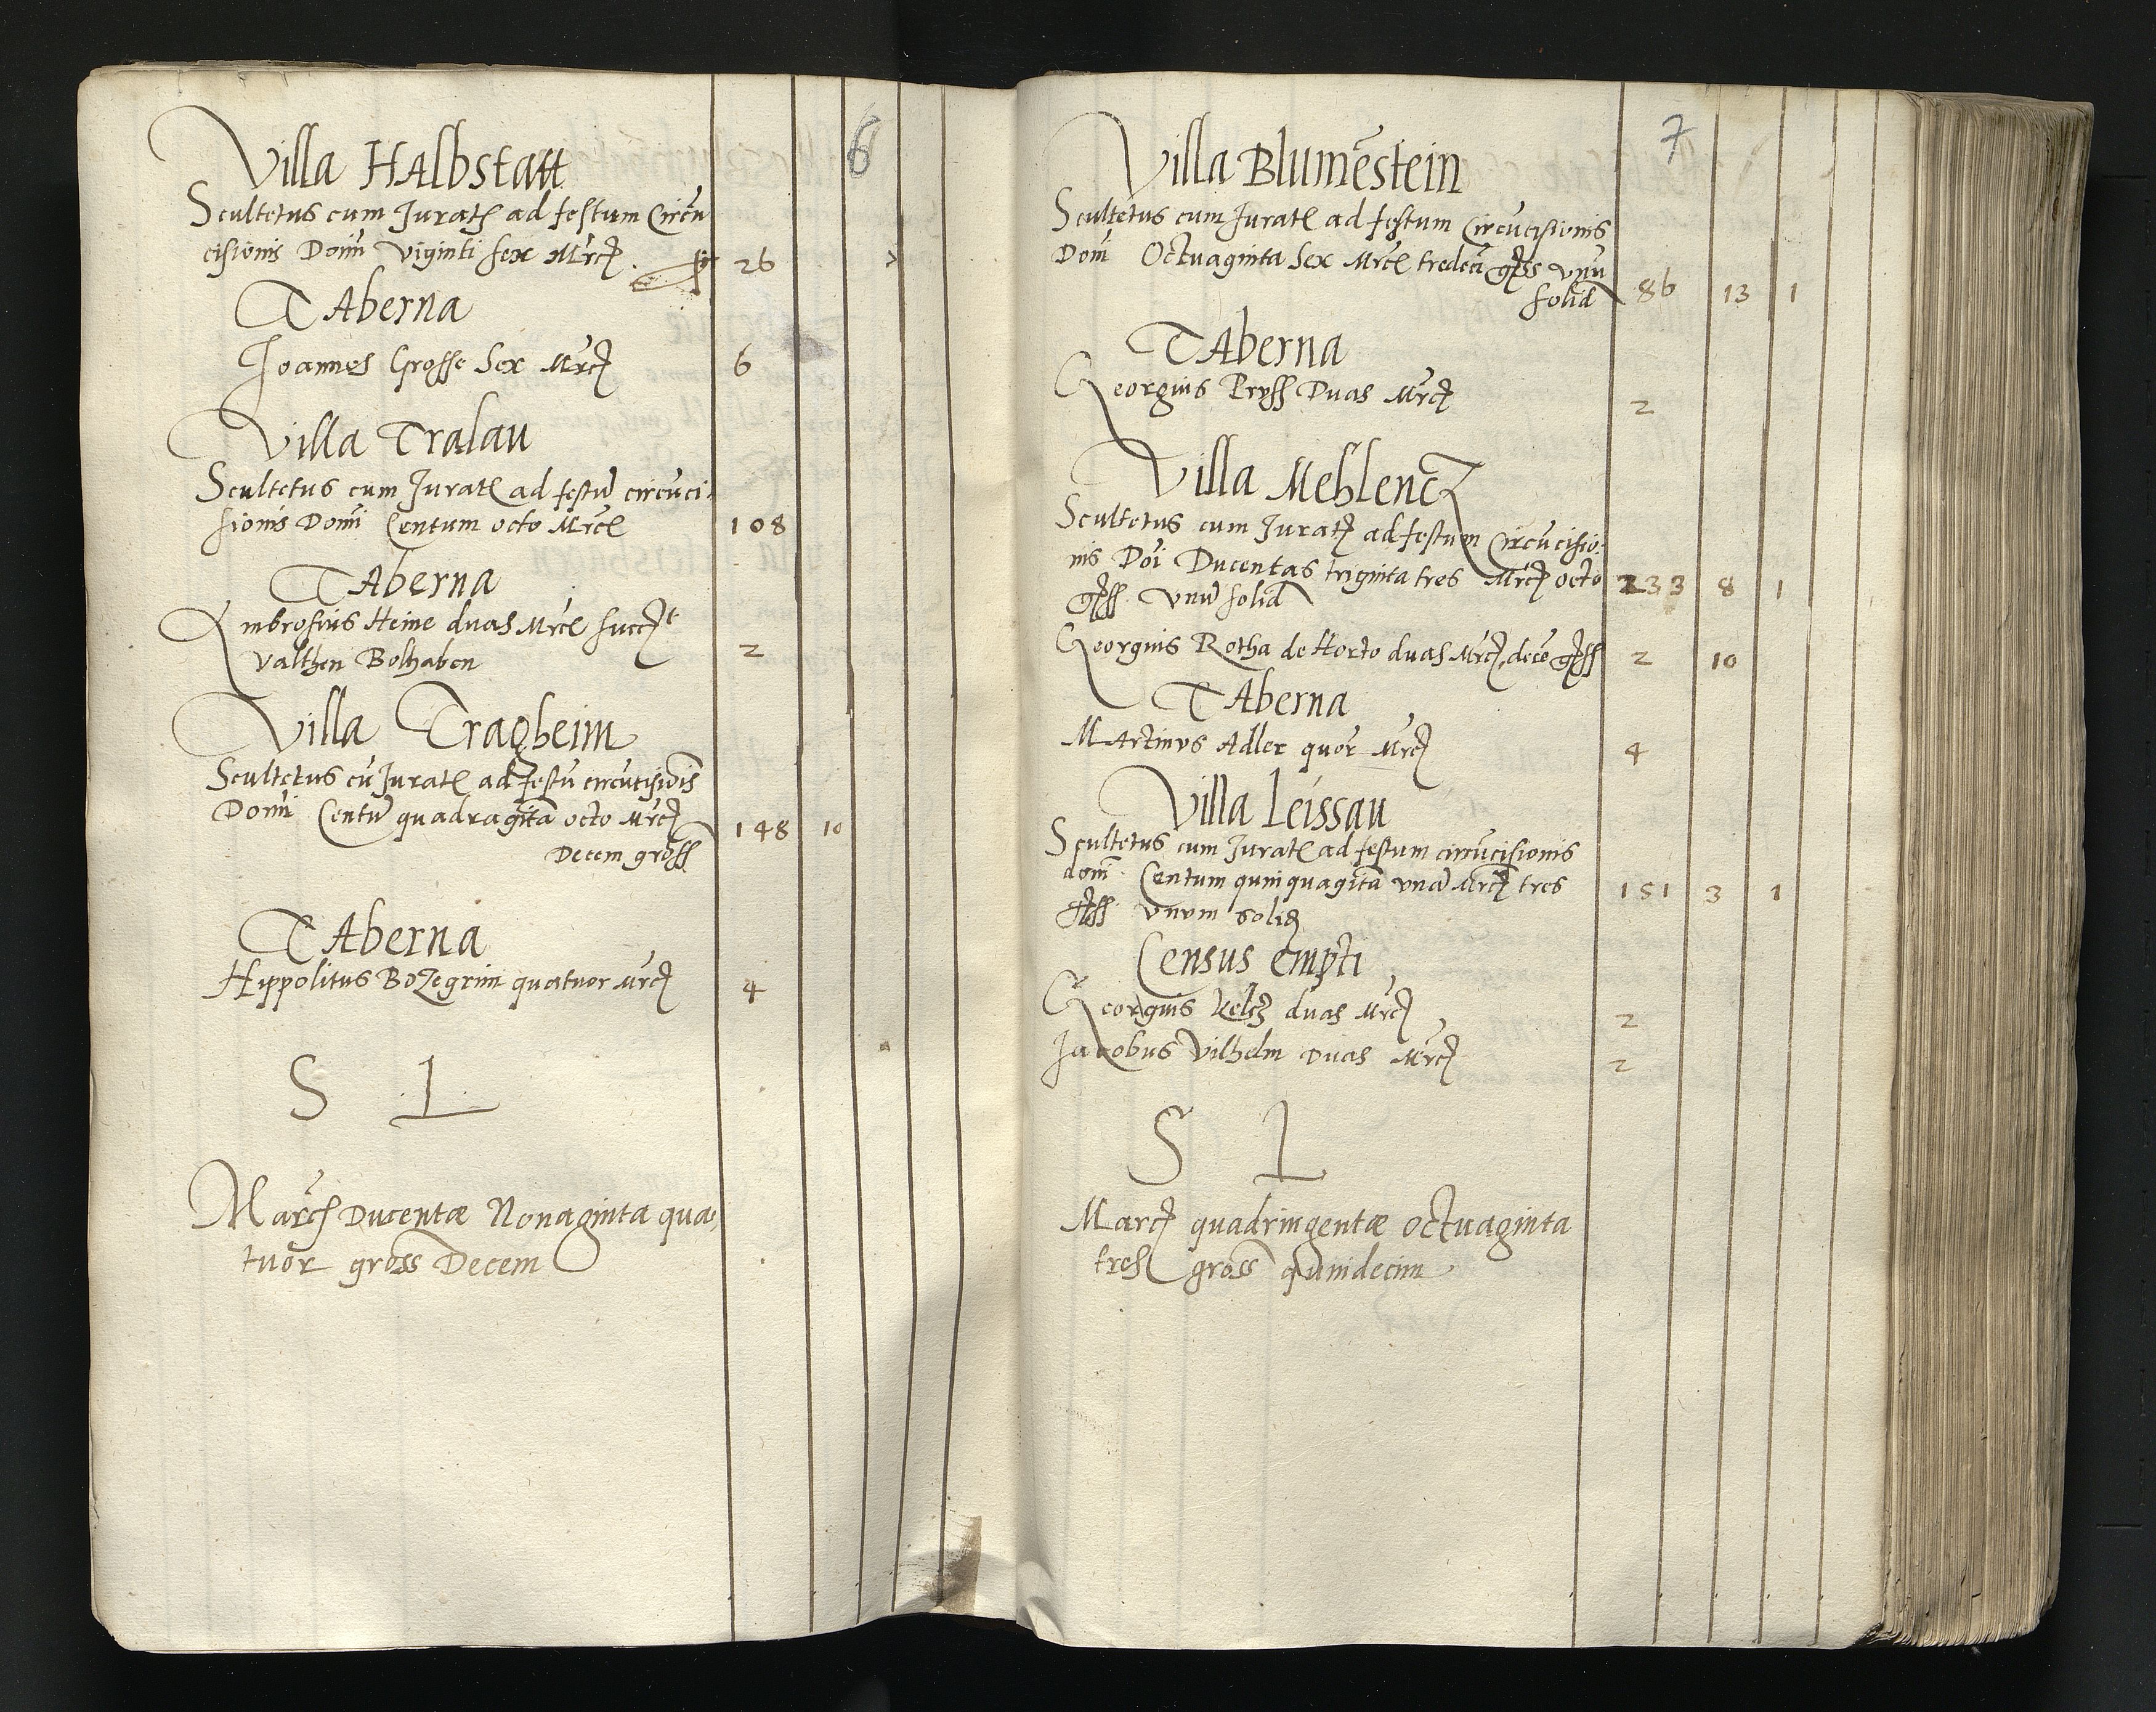 6
Villa HAlbstatt
Scultetus cum Jurat ad festum Circu
cisionis Domi viginti sex Mrc 26
TAberna
Joannes Grosse Sex Mrc 6
Villa Tralau
Scultetus cum Jurat ad festu circuci-
sionis Domi Centum octo Mrc 108
TAberna
Ambrosius Heine duas Mrc
Valthen Bolhaben 2
Villa Tragheim
Scultetus cu Jurat ad festu circucisiois
Domi Centu quadragita octo Mrc 148 10
Decem gross
TAberna
Hippolitus BoZegrim quatuor Mrc 4
S L
Marc Ducentæ Nonaginta qua
tuor gross Decem
7
Villa Blumēstein
Scultetus cum Jurat ad festum Circūcisionis
Domi Octuaginta Sex Mrc tredeci gss vnū
solid 86 13 1
TAberna
Georgius Pryss Duas Mrc 2
Villa Mehlencz
Scultetus cum Jurat ad festum Circūcisio-
nis Doi Ducentas triginta tres Mrc octo 233 8 1
gss vnu solid
Georgius Rotha de Horto duas Mrc, decē gss 2 10
TAberna
MArtinvs Adler quor Mrc 4
Villa Leissau
Scultetus cum Jurat ad festum circūcisionis
domi Centum quinquagita vna Mrc tres 151 3 1
gss vnvm solid
Census Empti
Georgius Keltz duas Mrc 2
Jacobus Vilhelm Duas Mrc 2
S L
Marc quadringentæ octuaginta
tres gross quindecim